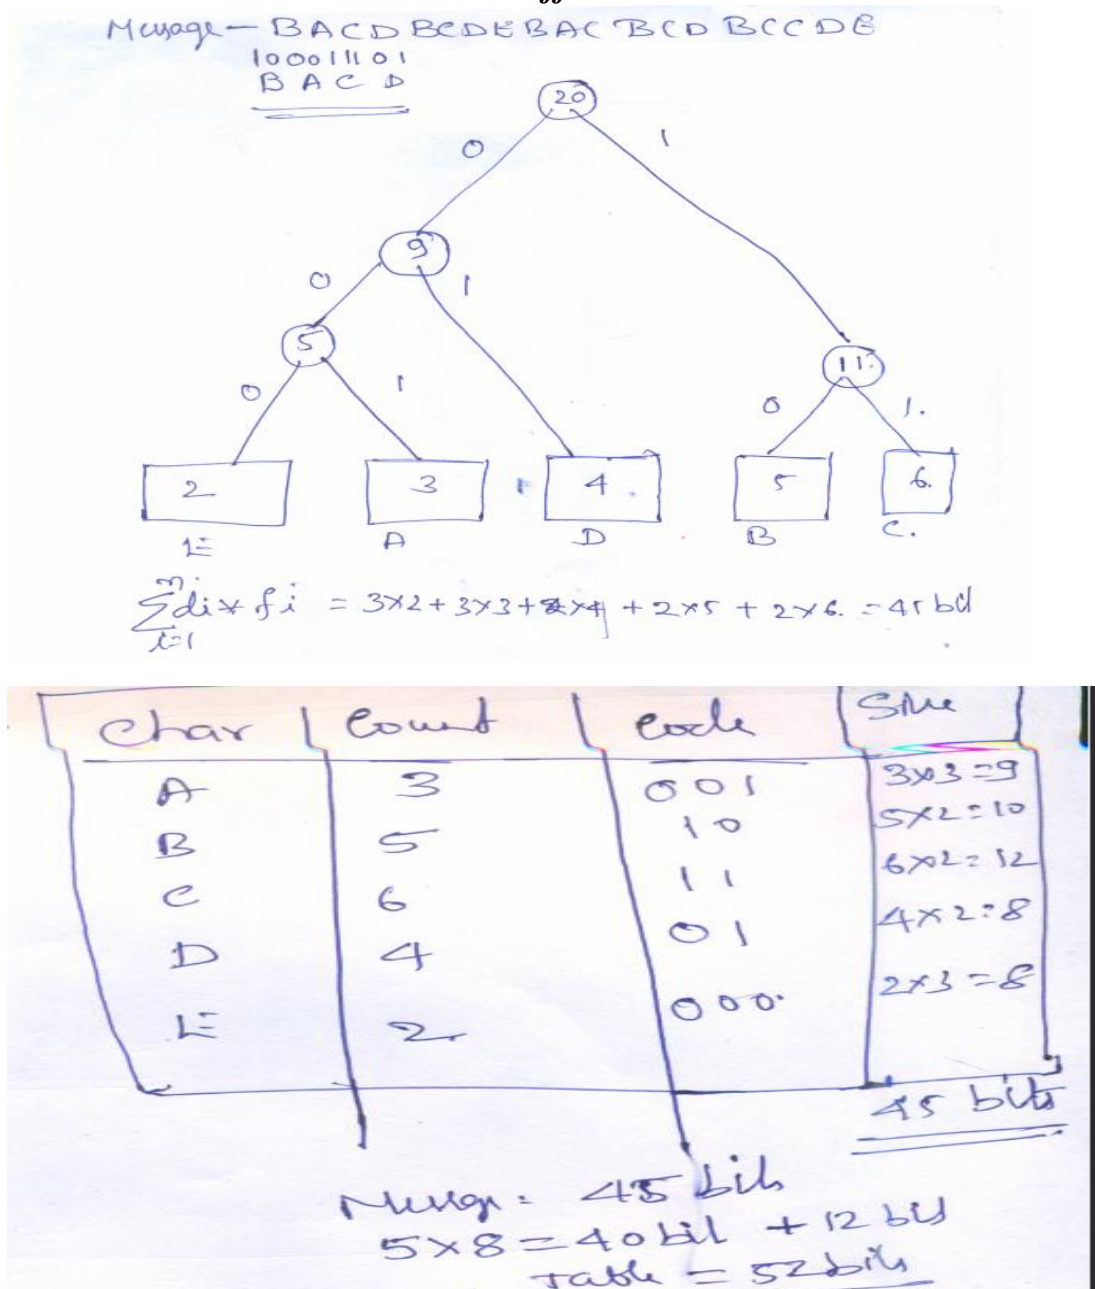 Message - BACD BCDEBAC BCD BCCDE
100011101
B A C D
20
0
1
9
0
1
5
11.
0
1
0
1.
2
3
4
5
6.
E
A
D
B
C.
n
∑ di * fi = 3×2 + 3×3 + 2×4 + 2×5 + 2×6 = 45 bit
i=1
Char Count Code Size
A 3 001 3×3=9
B 5 10 5×2=10
C 6 11 6×2=12
D 4 01 4×2=8
E 2. 000. 2×3=8
45 bits
Message = 45 bits
5×8=40 bit + 12 bit
Table = 52 bits